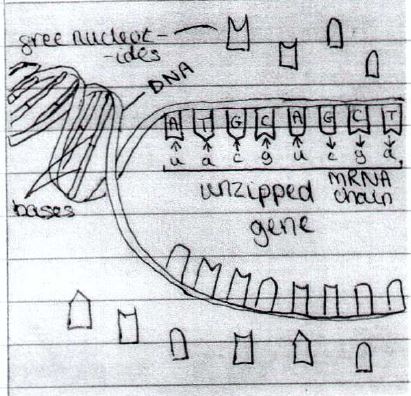 free nucleot-
-ides
DNA
A T G C A G C T
u a c g u c g a
bases
unzipped
gene
mRNA
chain